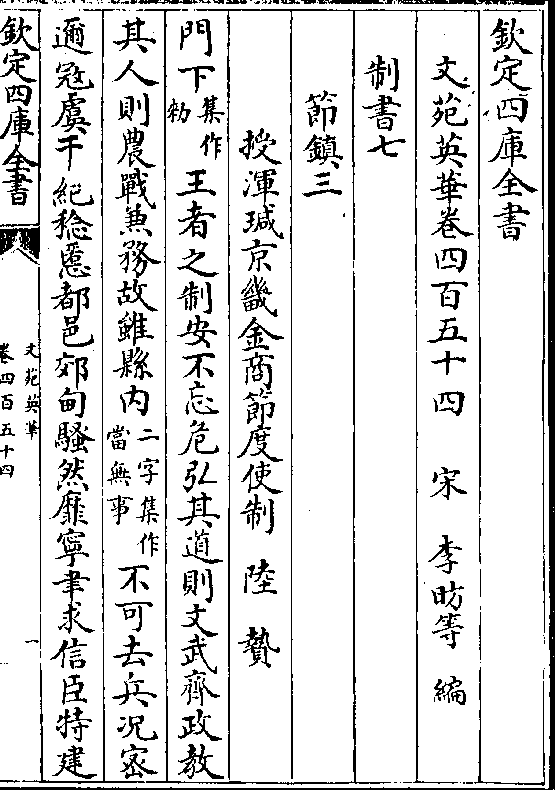 欽定四庫全書
文苑英華卷四百五十四 宋 李昉等 編
制書七
節鎮三
授渾瑊京畿金商節度使制 陸贄
門下集作勑王者之制安不忘危弘其道則文武齊政教
其人則農戰兼務故雖縣内二字集作當無事不可去兵况密
邇寇虞干紀稔慝都邑郊甸騷然靡寧聿求信臣特建
欽定四庫全書
文苑英華
卷四百五十四
一